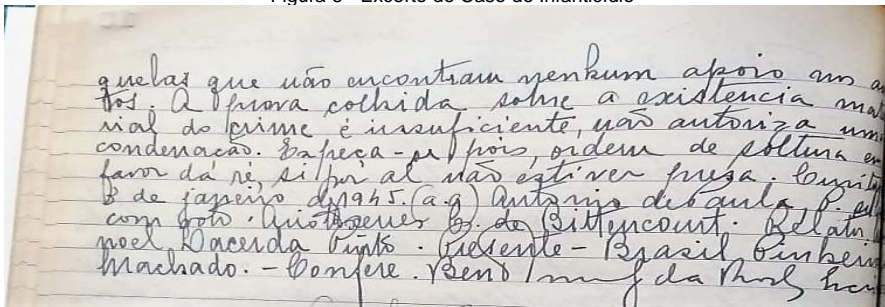 Figura 3 - Excerto do Caso de Infanticídio
quelas que não encontram nenhum apoio nos a
tos. A prova colhida sobre a existencia mate
rial do crime é insuficiente, não autoriza uma
condenação. Expeça-se, pois, ordem de soltura em
favor da ré, si por al não estiver presa. Curity
3 de janeiro de 1945. (a.a) Antonio de Paula, P.
com voto. Aristoxenes C. de Bittencourt. Relator
noel Lacerda Pinto. Presente - Brasil Pinheiro
Machado. - Confere. Bento da